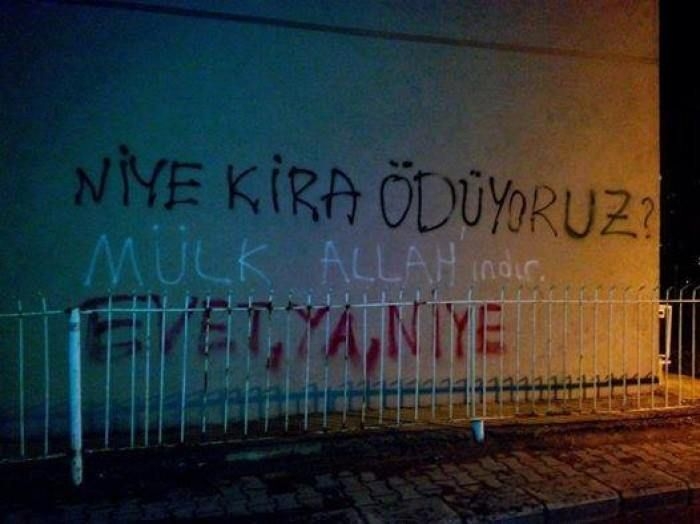 NİYE KİRA ÖDÜYORUZ?
MÜLK ALLAH'indir.
EVET, YA, NİYE